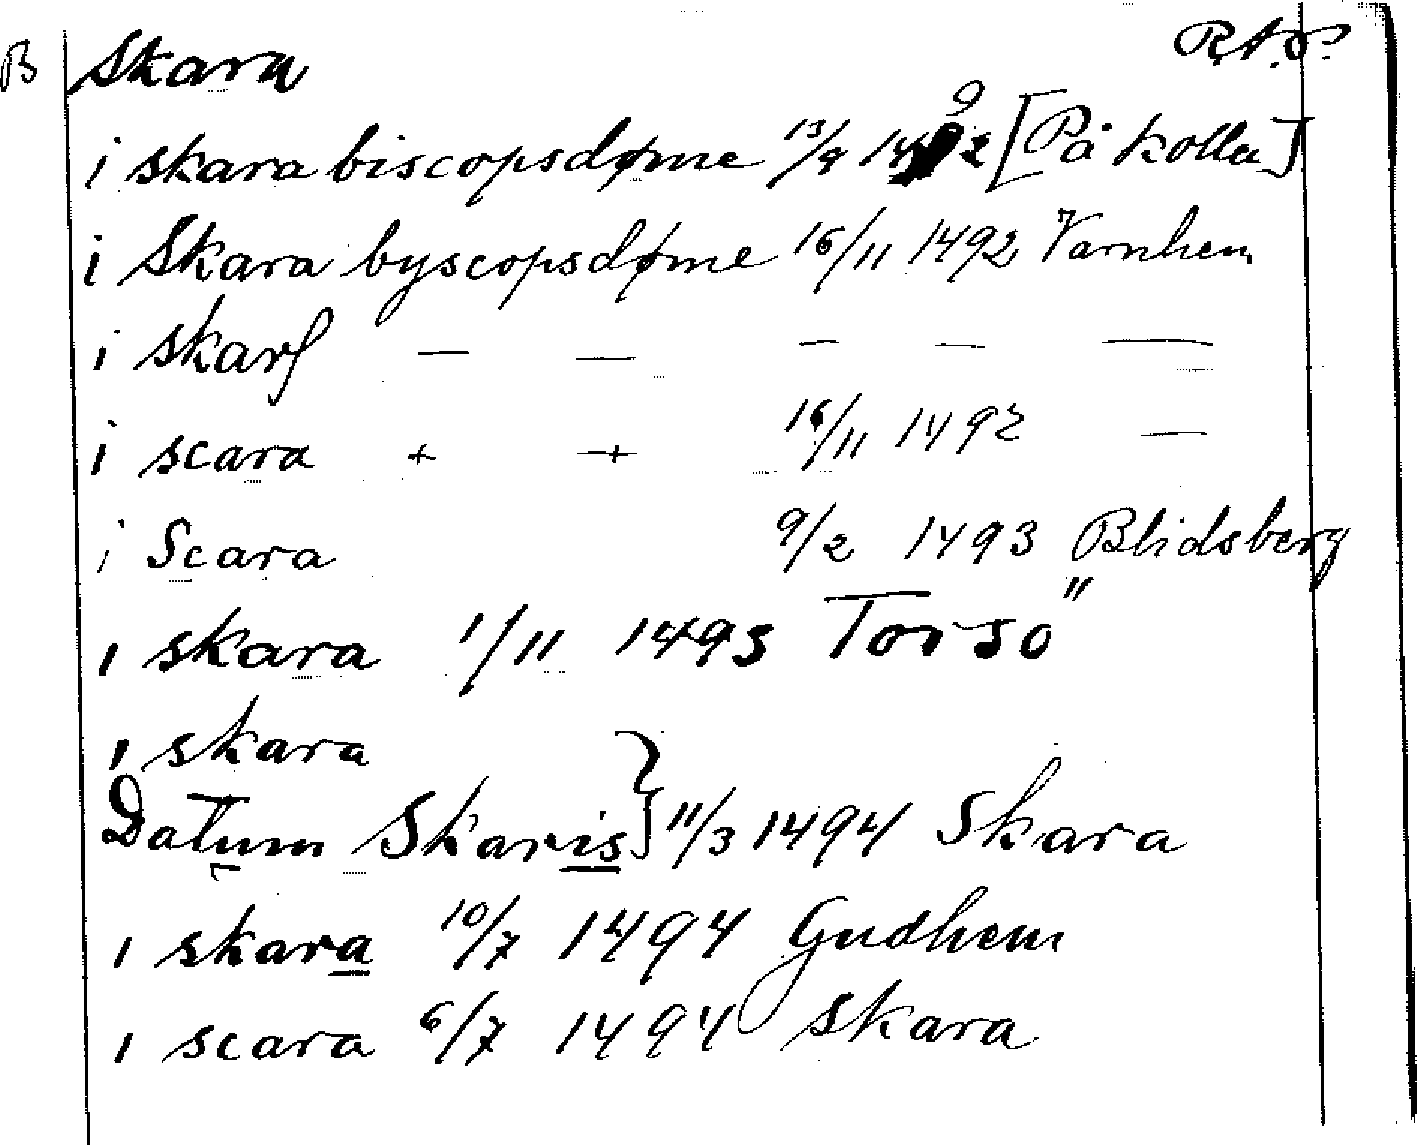 B Skara R.A.P.
i skara biscopsdøme 13/9 1492 [På kolla]
i Skara byscopsdøme 16/11 1492 Varnhem
i skarꝭ — — — — —
i scara + -+ 16/11 1492 —
i Scara 9/2 1493 Blidsberg
i skara 1/11 1493 Torsö
i skara
Datum Skaris } 11/3 1494 Skara
i skara 10/7 1494 Gudhem
i scara 6/7 1494 Skara